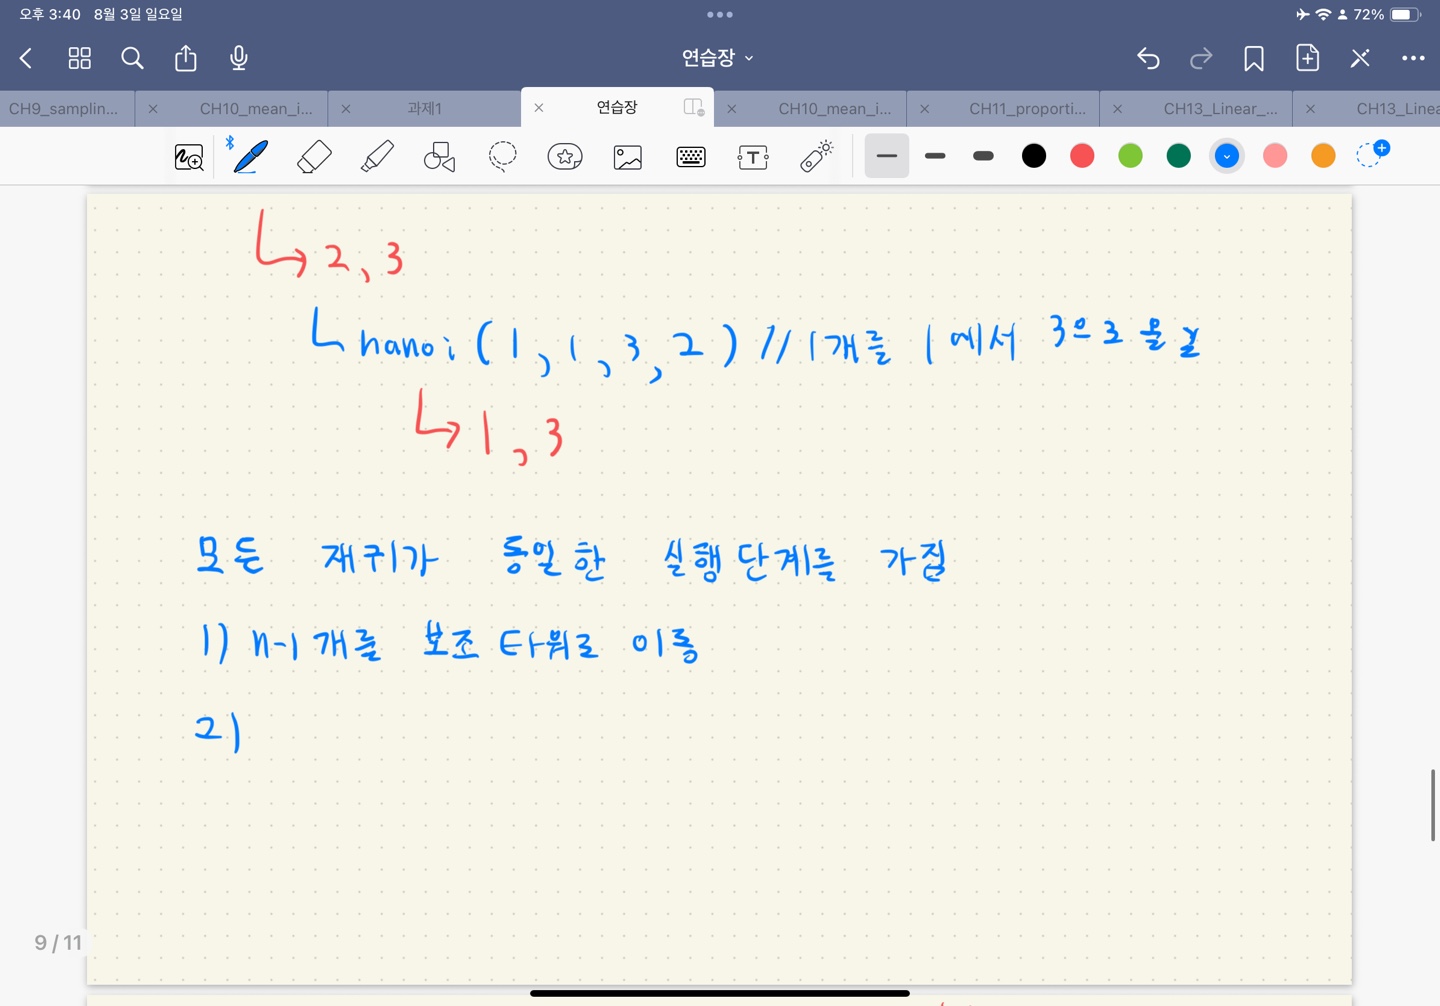 오후 3:40 8월 3일 일요일
72%
연습장
CH9_samplin...
CH10_mean_i...
과제1
연습장
CH10_mean_i...
CH11_proporti...
CH13_Linear_...
CH13_Linea
T
2, 3
hanoi (1, 1, 3, 2) // 1개를 1에서 3으로 옮길
1, 3
모든 재귀가 동일한 실행단계를 가짐
1) n-1개를 보조 타워로 이동
2)
9 / 11